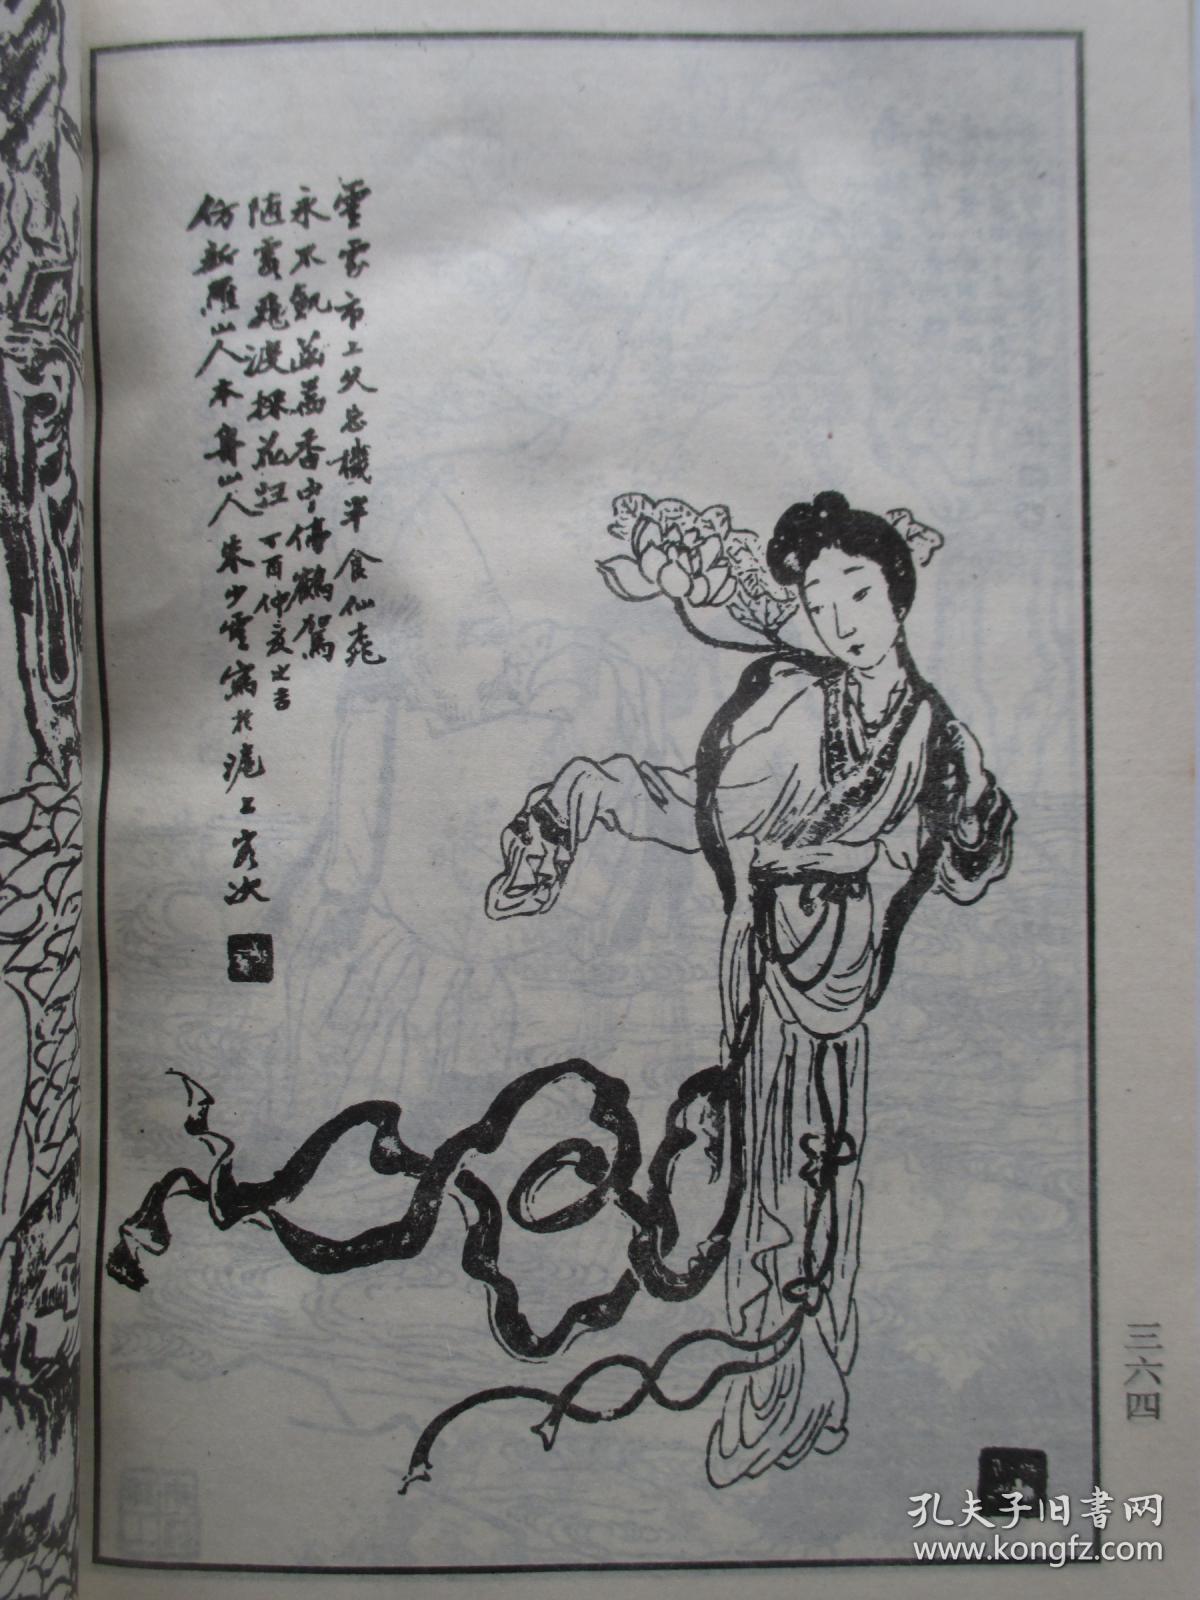 雲霧市上久忘機單食仙苑
永不飢菡萏香中停鶴駕
随處飛渡採花歸丁酉仲夏之吉
仿新羅山人本舟山人朱少雲寫於滬上客次
三六四
孔夫子旧書网
www.kongfz.com